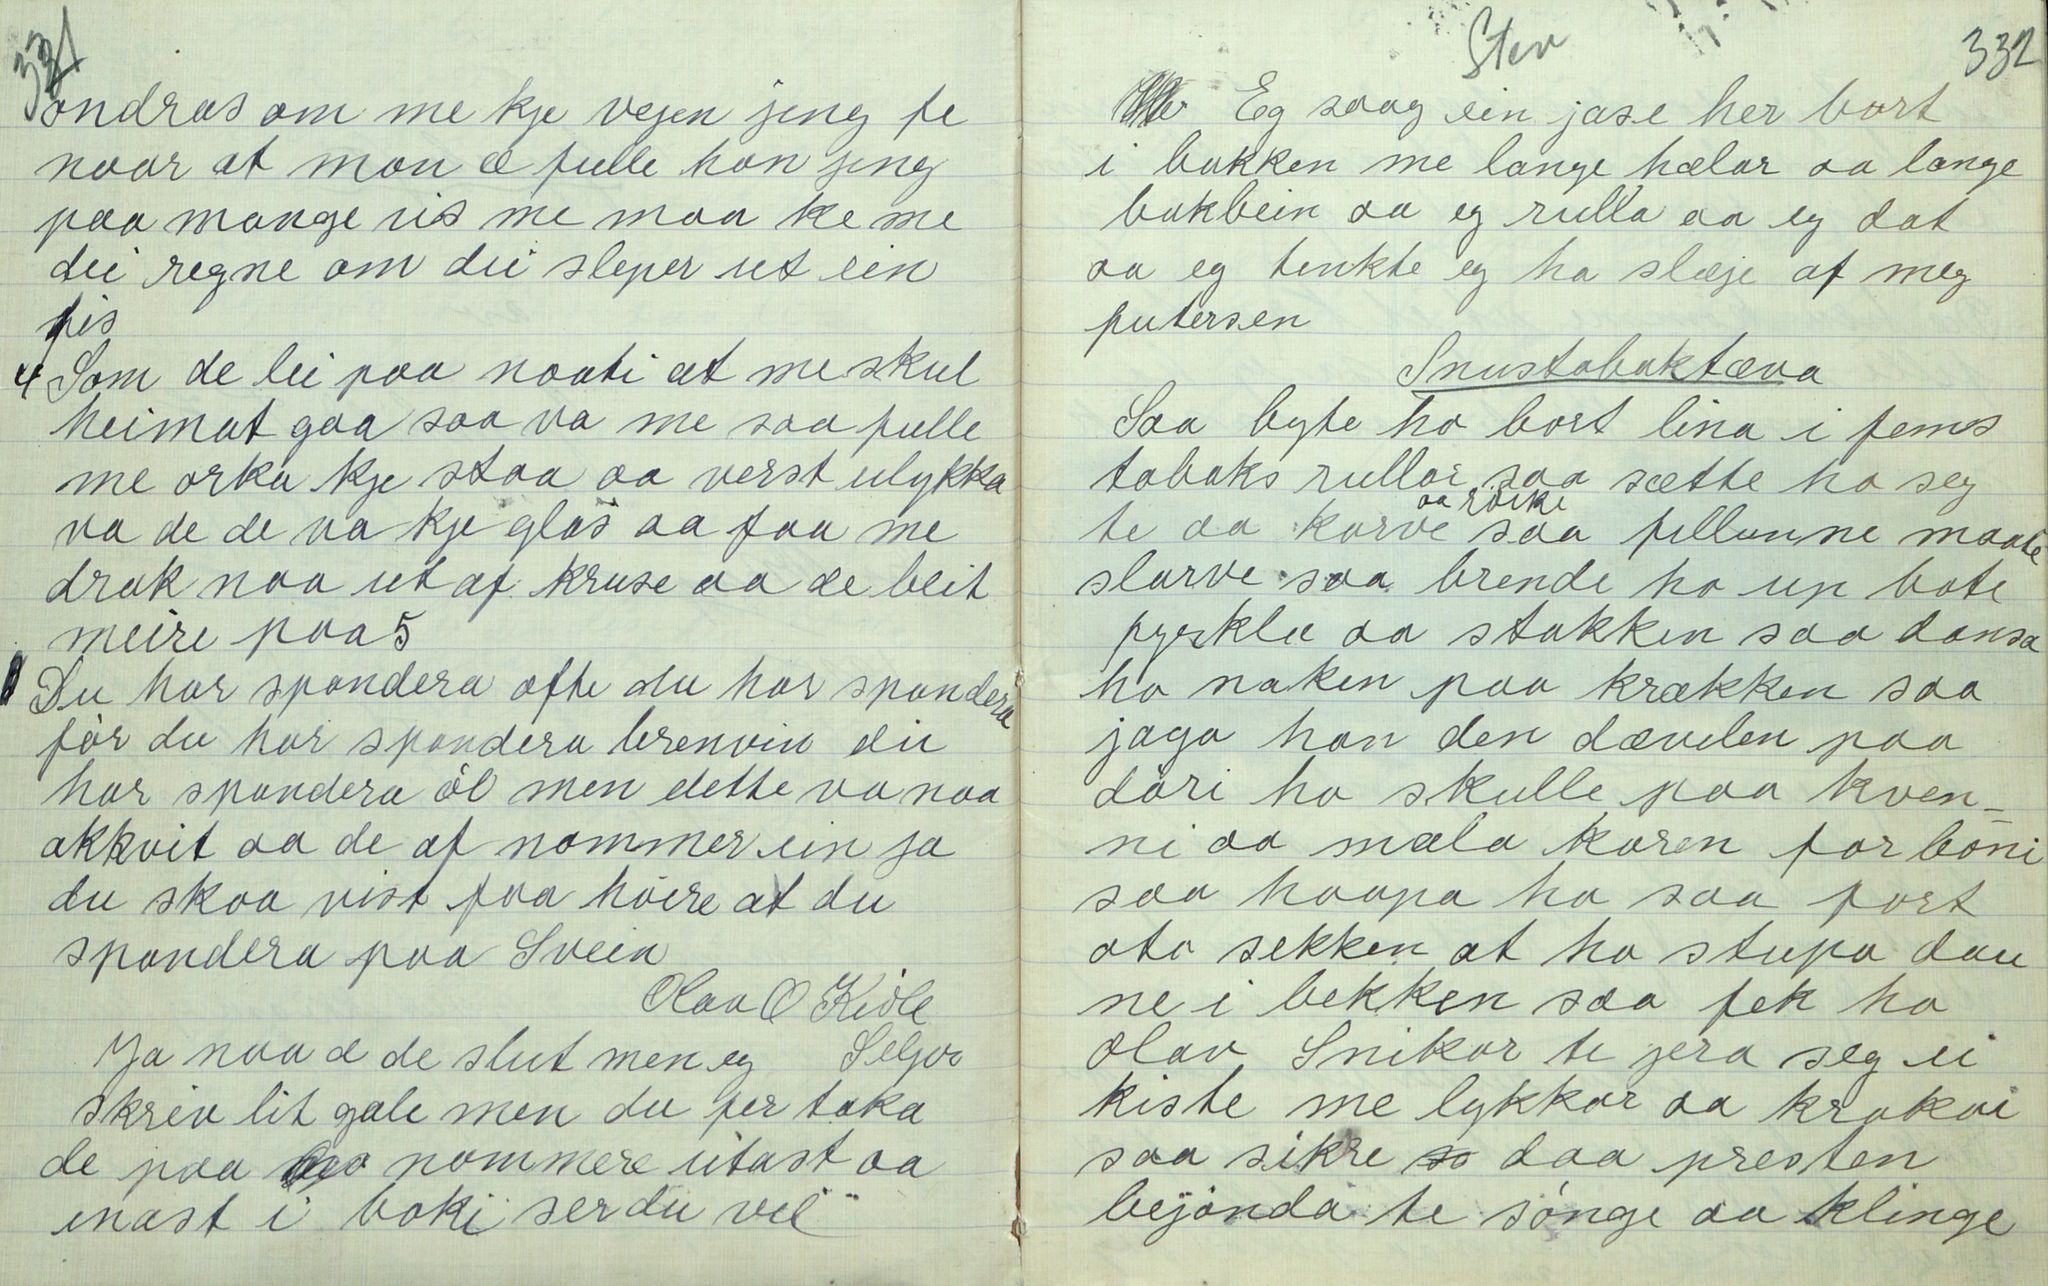 331
ondras om me kje vejen jeng fe
naar at man æ fulle han jeng
paa mange vis me maa ke me
dei regne om dei sleper ut ein
fis
4 Som de lei paa naati at me skul
heimat gaa saa va me saa fulle
me orka kje staa aa verst ulykka
va de de va kje glas aa faa me
drak naa ut af kruse aa de beit
meire paa 5
Du har spandera ofte du har spandera
før du har spandera brenvin du
har spandera øl men dette va naa
akkvit aa de af nommer ein ja
du skaa vist faa høire at du
spandera paa Svein
Olav O Kivle
Ja naa æ de slut men eg Seljor
skrev lit gale men du fer taka
de paa nommere utast aa
inast i boki ser du vel
Stev 332
Eg saag ein jase her bort
i bakken me lange hælar aa lange
bakbein aa eg rulla aa eg dat
aa eg tenkte eg ha slæje af meg
putersen
Snustobaktæva
Saa byte ho bort lina i fems
tobaks rullar saa sætte ho seg
aa røike
te aa karve saa fillunne maate
slarve saa brende ho up bate
pyskla aa stakken saa dansa
ho naken paa krækken saa
jaga han den dævelen paa
døri ho skulle paa kven-
ni aa mæla karen for bøni
saa haapa ho saa fort
ata sekken at ho stupa dau
ne i bekken saa fek ho
Olav Snikar te jera seg ei
kiste me lykkar aa krakai
saa sikre daa presten
bejønda te sønge aa klinge